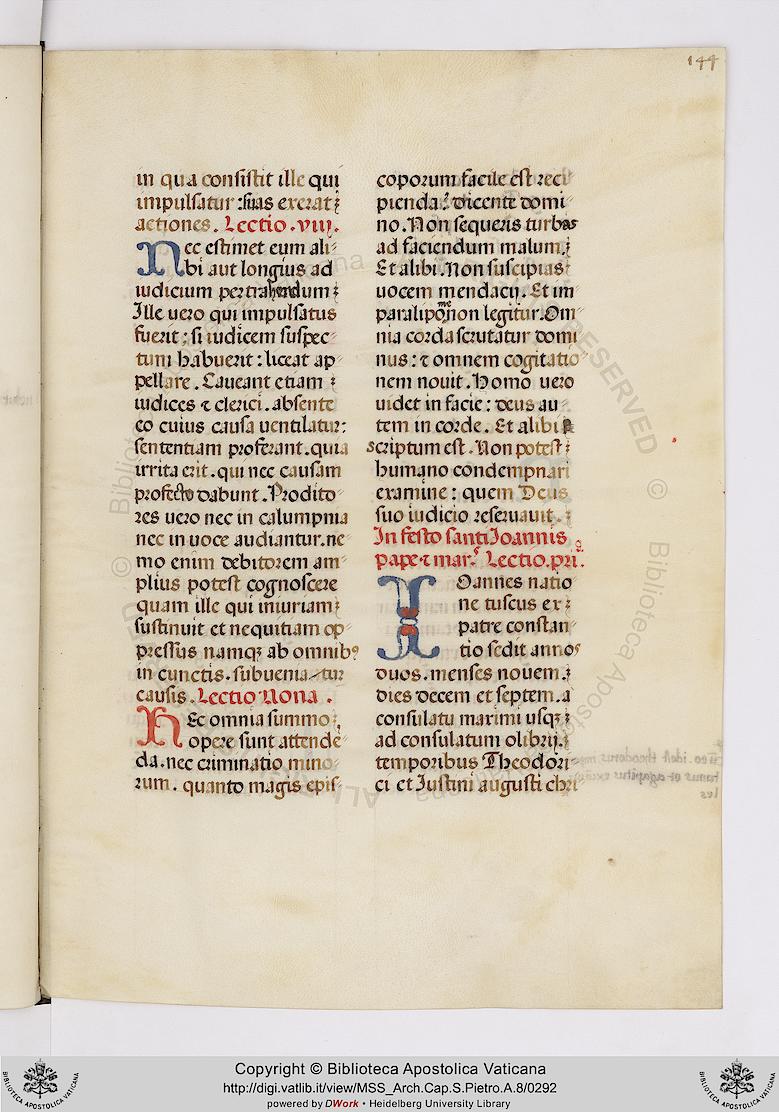 144
in qua consistit ille qui
impulsatur : suas exerat
actiones. Lectio. viij.
Nec estimet eum ali
bi aut longius ad
iudicium pertrahendum
Ille uero qui impulsatus
fuerit : si iudicem suspec
tum habuerit : liceat ap
pellare. Caueant etiam :
iudices ⁊ clerici. absente
eo cuius causa uentilatur:
sententiam proferant. quia
irrita erit. qui nec causam
profecto dabunt. Prodito
res uero nec in calumpnia
nec in uoce audiantur. ne
mo enim debitorem am
plius potest cognoscere
quam ille qui iniuriam
sustinuit et nequitiam op
pressus namqꝫ ab omnibꝰ
in cunctis. subueniatur
causis. Lectio Nona.
HEc omnia summo
opere sunt attende
da. nec criminatio mino
rum. quanto magis epis
coporum facile est reci
pienda : dicente domi
no. Non sequeris turbas
ad faciendum malum.
Et alibi. Non suscipias
uocem mendacij. Et im
paralipomenon legitur. Om
nia corda scrutatur domi
nus : ⁊ omnem cogitatio
nem nouit. Homo uero
uidet in facie : deus au
tem in corde. Et alibi
scriptum est. Non potest
humano condempnari
examine : quem Deus
suo iudicio reseruauit.
In festo santi Joannis
pape ⁊ mar. Lectio. pri.
IOannes natio
ne tuscus ex
patre constan
tio sedit annos
duos. menses nouem.
dies decem et septem. a
consulatu maximi usqꝫ
ad consulatum olibrij.
temporibus Theodori
ci et Justini augusti chri
Copyright © Biblioteca Apostolica Vaticana
http://digi.vatlib.it/view/MSS_Arch.Cap.S.Pietro.A.8/0292
powered by DWork • Heidelberg University Library
BIBLIOTECA APOSTOLICA VATICANA
BIBLIOTECA APOSTOLICA VATICANA